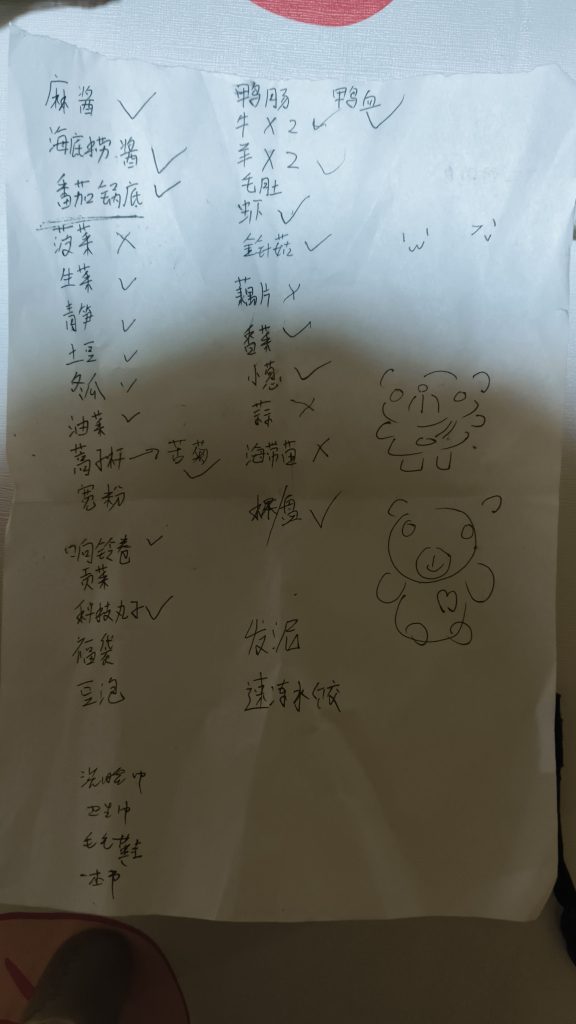 麻酱 ✓
海底捞酱 ✓
番茄锅底 ✓
菠菜 ×
生菜 ✓
青笋 ✓
土豆 ✓
冬瓜 ✓
油菜 ✓
蒿子杆→苦菊 ✓
宽粉
响铃卷 ✓
贡菜
科技丸子 ✓
福袋
豆泡
洗脸巾
卫生巾
毛毛鞋
鸭肠 鸭血 ✓
牛×2 ✓
羊×2 ✓
毛肚
虾 ✓
金针菇 ✓
藕片 ×
香菜 ✓
小葱 ✓
蒜 ×
海带苗 ×
果盘 ✓
发泥
速冻水饺